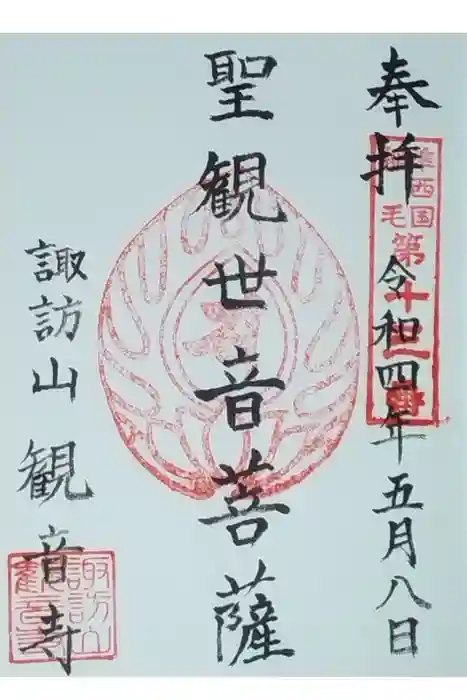 奉拝
令和四年五月八日
聖観世音菩薩
諏訪山観音寺
西国
毛
第十三番
諏訪山
観音寺